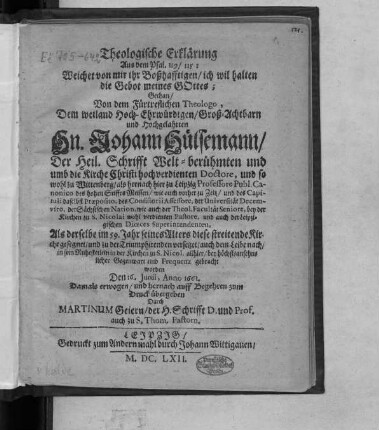 Theologische Erklärung
Aus dem Psal. 119/ 115:
Weichet von mir ihr Boßhafftigen/ ich wil halten
die Gebot meines GOttes;
Gethan/
Von dem Fürtreflichen Theologo,
Dem weiland Hoch-Ehrwürdigen/ Groß-Achtbarn
und Hochgelahrten
Hn. Johann Hülsemann/
Der Heil. Schrifft Welt-berühmten und
umb die Kirche Christi hochverdienten Doctore, und so
wohl zu Wittenberg/ als hernach hier zu Leipzig Professore Publ. Ca-
nonico des hohen Stiffts Meissen/ wie auch vorher zu Zeitz/ und des Capi-
tuls daselbst Præposito, des Consistorii Assessore, der Universität Decem-
viro, der Sächsischen Nation, wie auch der Theol. Facultät Seniore, bey der
Kirchen zu S. Nicolai wohl verdienten Pastore, und auch der Leip-
zigischen Diœces Superintendenten.
Als derselbe im 59. Jahr seines Alters diese streitende Kir-
che gesegnet/ und zu der Triumphirenden versetzet/ auch dem Leibe nach/
in sein Ruhestettlein in der Kirchen zu S. Nicol. allhier/ bey höchstansehn-
licher Gegenwart und Frequenz gebracht
worden
Den 16. Junii, Anno 1661.
Damals erwogen/ und hernach auff Begehren zum
Druck übergeben
Durch
MARTINUM Geiern/ der H. Schrifft D. und Prof.
auch zu S. Thom. Pastorn,
LEIPZIG/
Gedruckt zum Andern mahl durch Johann Wittigauen/
M. DC. LXII.